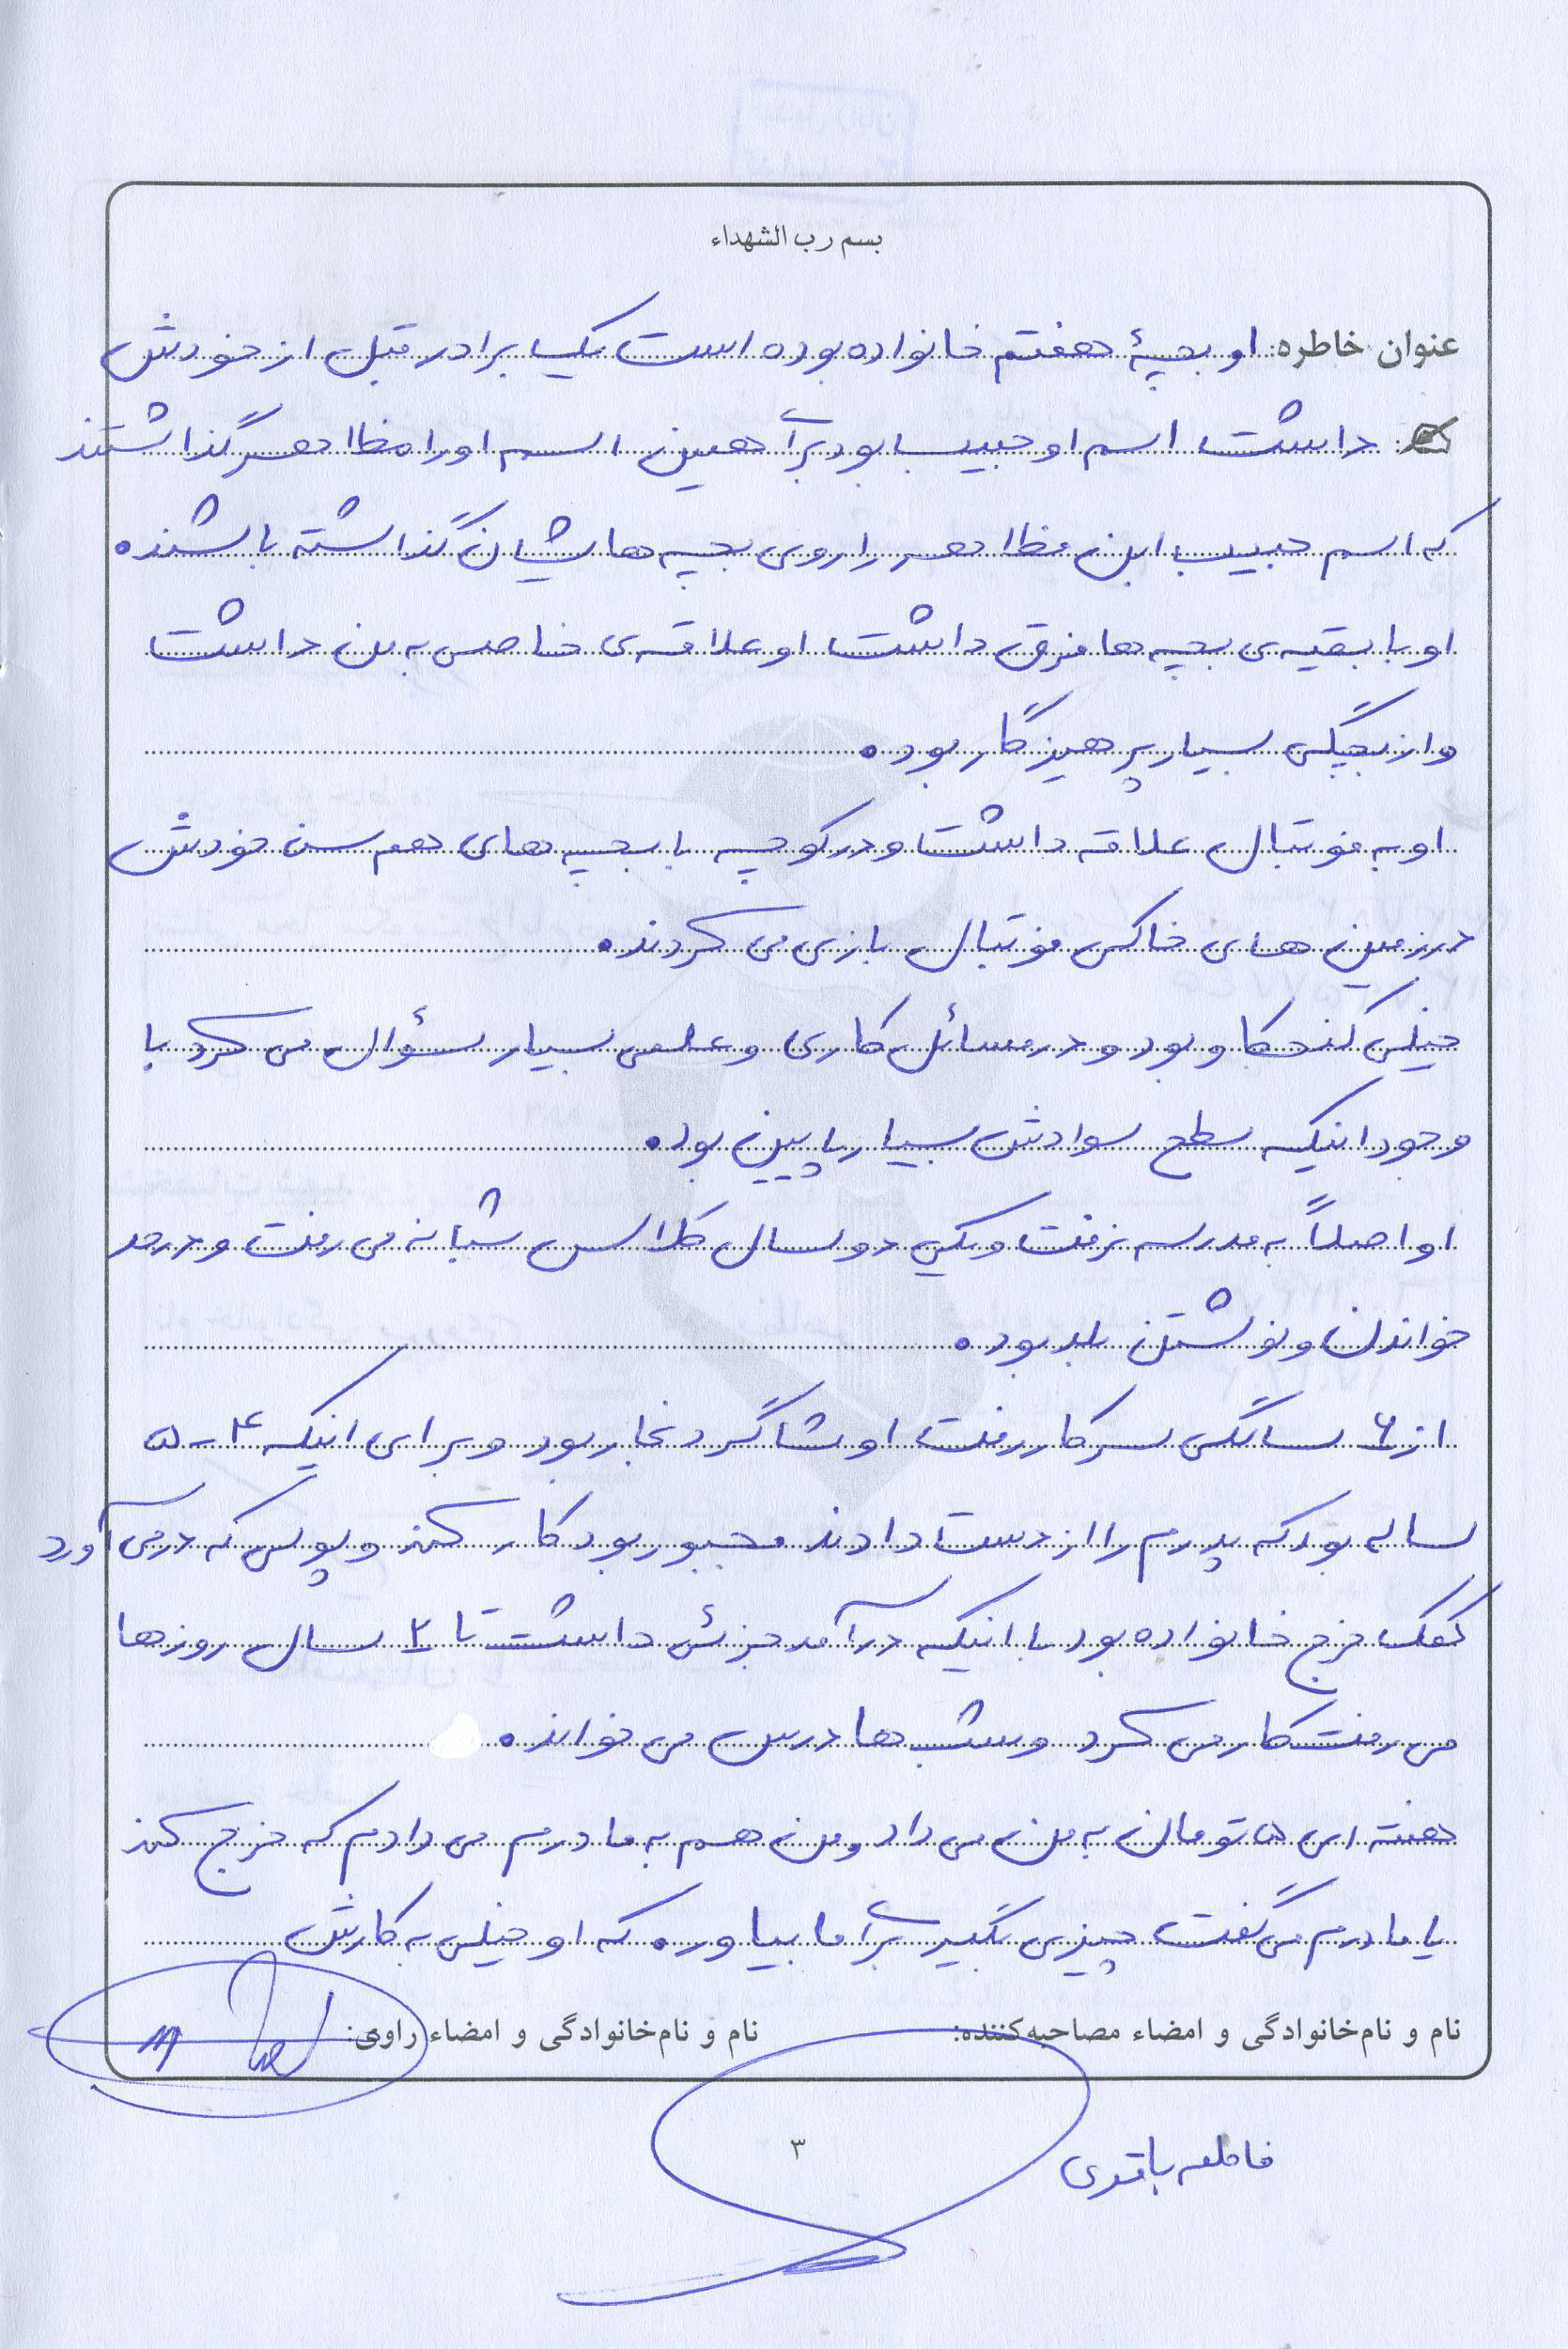 بسم رب الشهداء
عنوان خاطره: او بچهٔ هفتم خانواده بوده است یک برادر قبل از خودش
داشت اسم او حبیب بود برای همین اسم او را مظاهر گذاشتند
که اسم حبیب ابن مظاهر را روی بچه هایشان گذاشته باشند.
او با بقیه ی بچه ها فرق داشت او علاقه ی خاصی به من داشت
و از بچگی بسیار پرهیزگار بود.
او به فوتبال علاقه داشت و در کوچه با بچه های هم سن خودش
در زمین های خاکی فوتبال بازی می کردند.
خیلی کنجکاو بود و در مسائل کاری و علمی بسیار سؤال می کرد با
وجود اینکه سطح سوادش بسیار پایین بود.
او اصلاً به مدرسه نرفت و یکی دو سال کلاس شبانه می رفت و در حد
خواندن و نوشتن بلد بود.
از ۶ سالگی سر کار رفت او شاگرد نجار بود و برای اینکه ۴-۵
ساله بود که پدرم را از دست دادند مجبور بود کار کند و پولی که در می آورد
کمک خرج خانواده بود با اینکه درآمد جزئی داشت تا ۲ سال روزها
می رفت کار می کرد و شب ها درس می خواند.
هفته ای ۵ تومان به من می داد و من هم به مادرم می دادم که خرج کند
یا مادرم می گفت چیزی بگیر برای ما بیاور. که او خیلی به کارش
نام و نام‌خانوادگی و امضاء مصاحبه‌کننده: نام و نام‌خانوادگی و امضاء راوی:
فاطمه باقری
۳